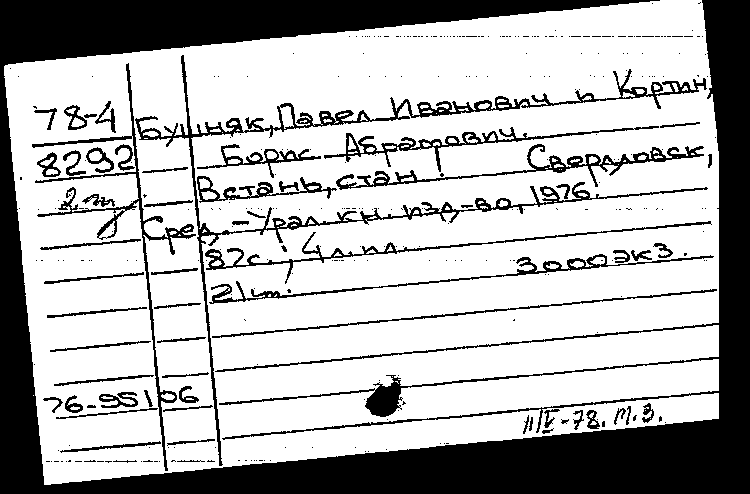 78-4 Бушняк, Павел Иванович и Кортин,
8292 Борис Абрамович.
2. эк. Встань, стан! Свердловск,
Сред.-Урал. кн. изд-во, 1976.
87с.; 4 л. ил.
21 cm. 3000экз.
76-95106
11/V-78. М.З.